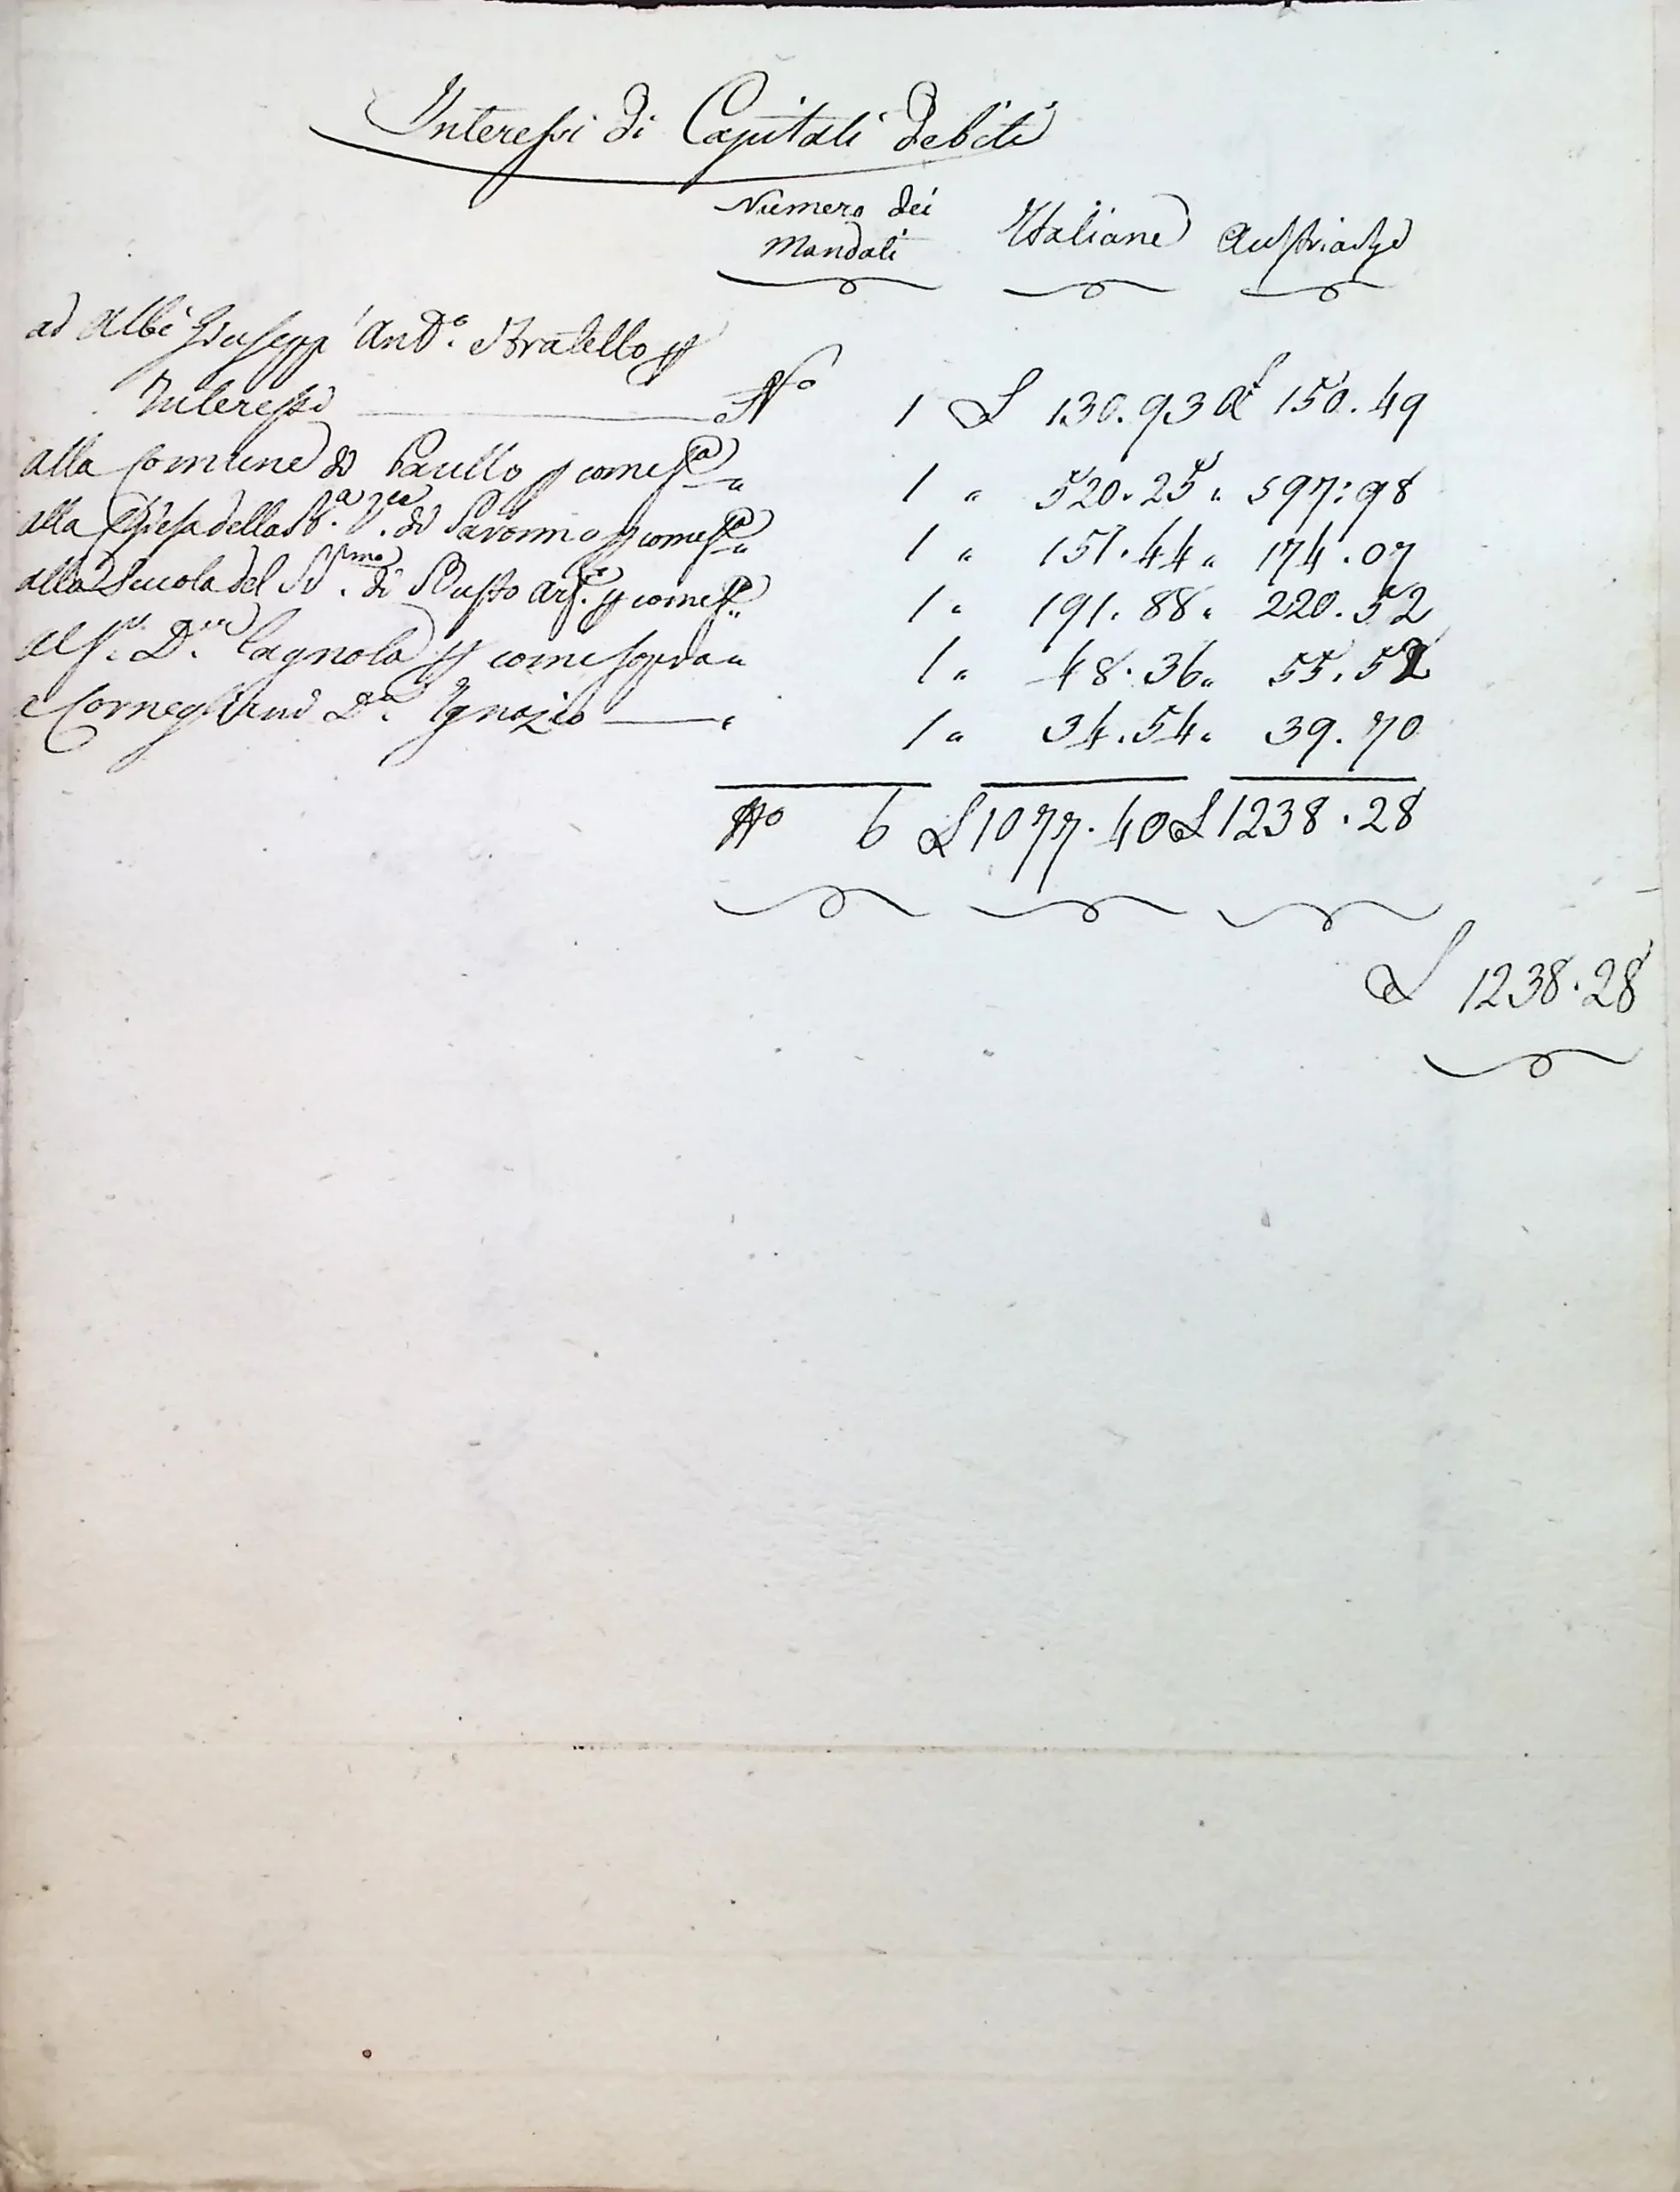 Interessi di Capitali debiti
Numero dei Mandati Italiane Austriache
ad Albè Giusepp Ant.o e Fratello p
Interessi N.o 1 L 130.93 L 150.49
alla Comune di Paullo p come s.a " 1 " 520.25 " 597:98
alla Chiesa della B.a V.ne di p come s.a " 1 " 151.44 " 174.07
alla Scuola del SS.mo di Busto Ars.o p come s.a " 1 " 191.88 " 220.52
al S.r D.n Cagnola p come sopra " 1 " 48.36 " 55.52
e Cornegliani D.n Ignazio " 1 " 34.54 " 39.70
N.o 6 L 1077.40 L 1238.28
L 1238.28